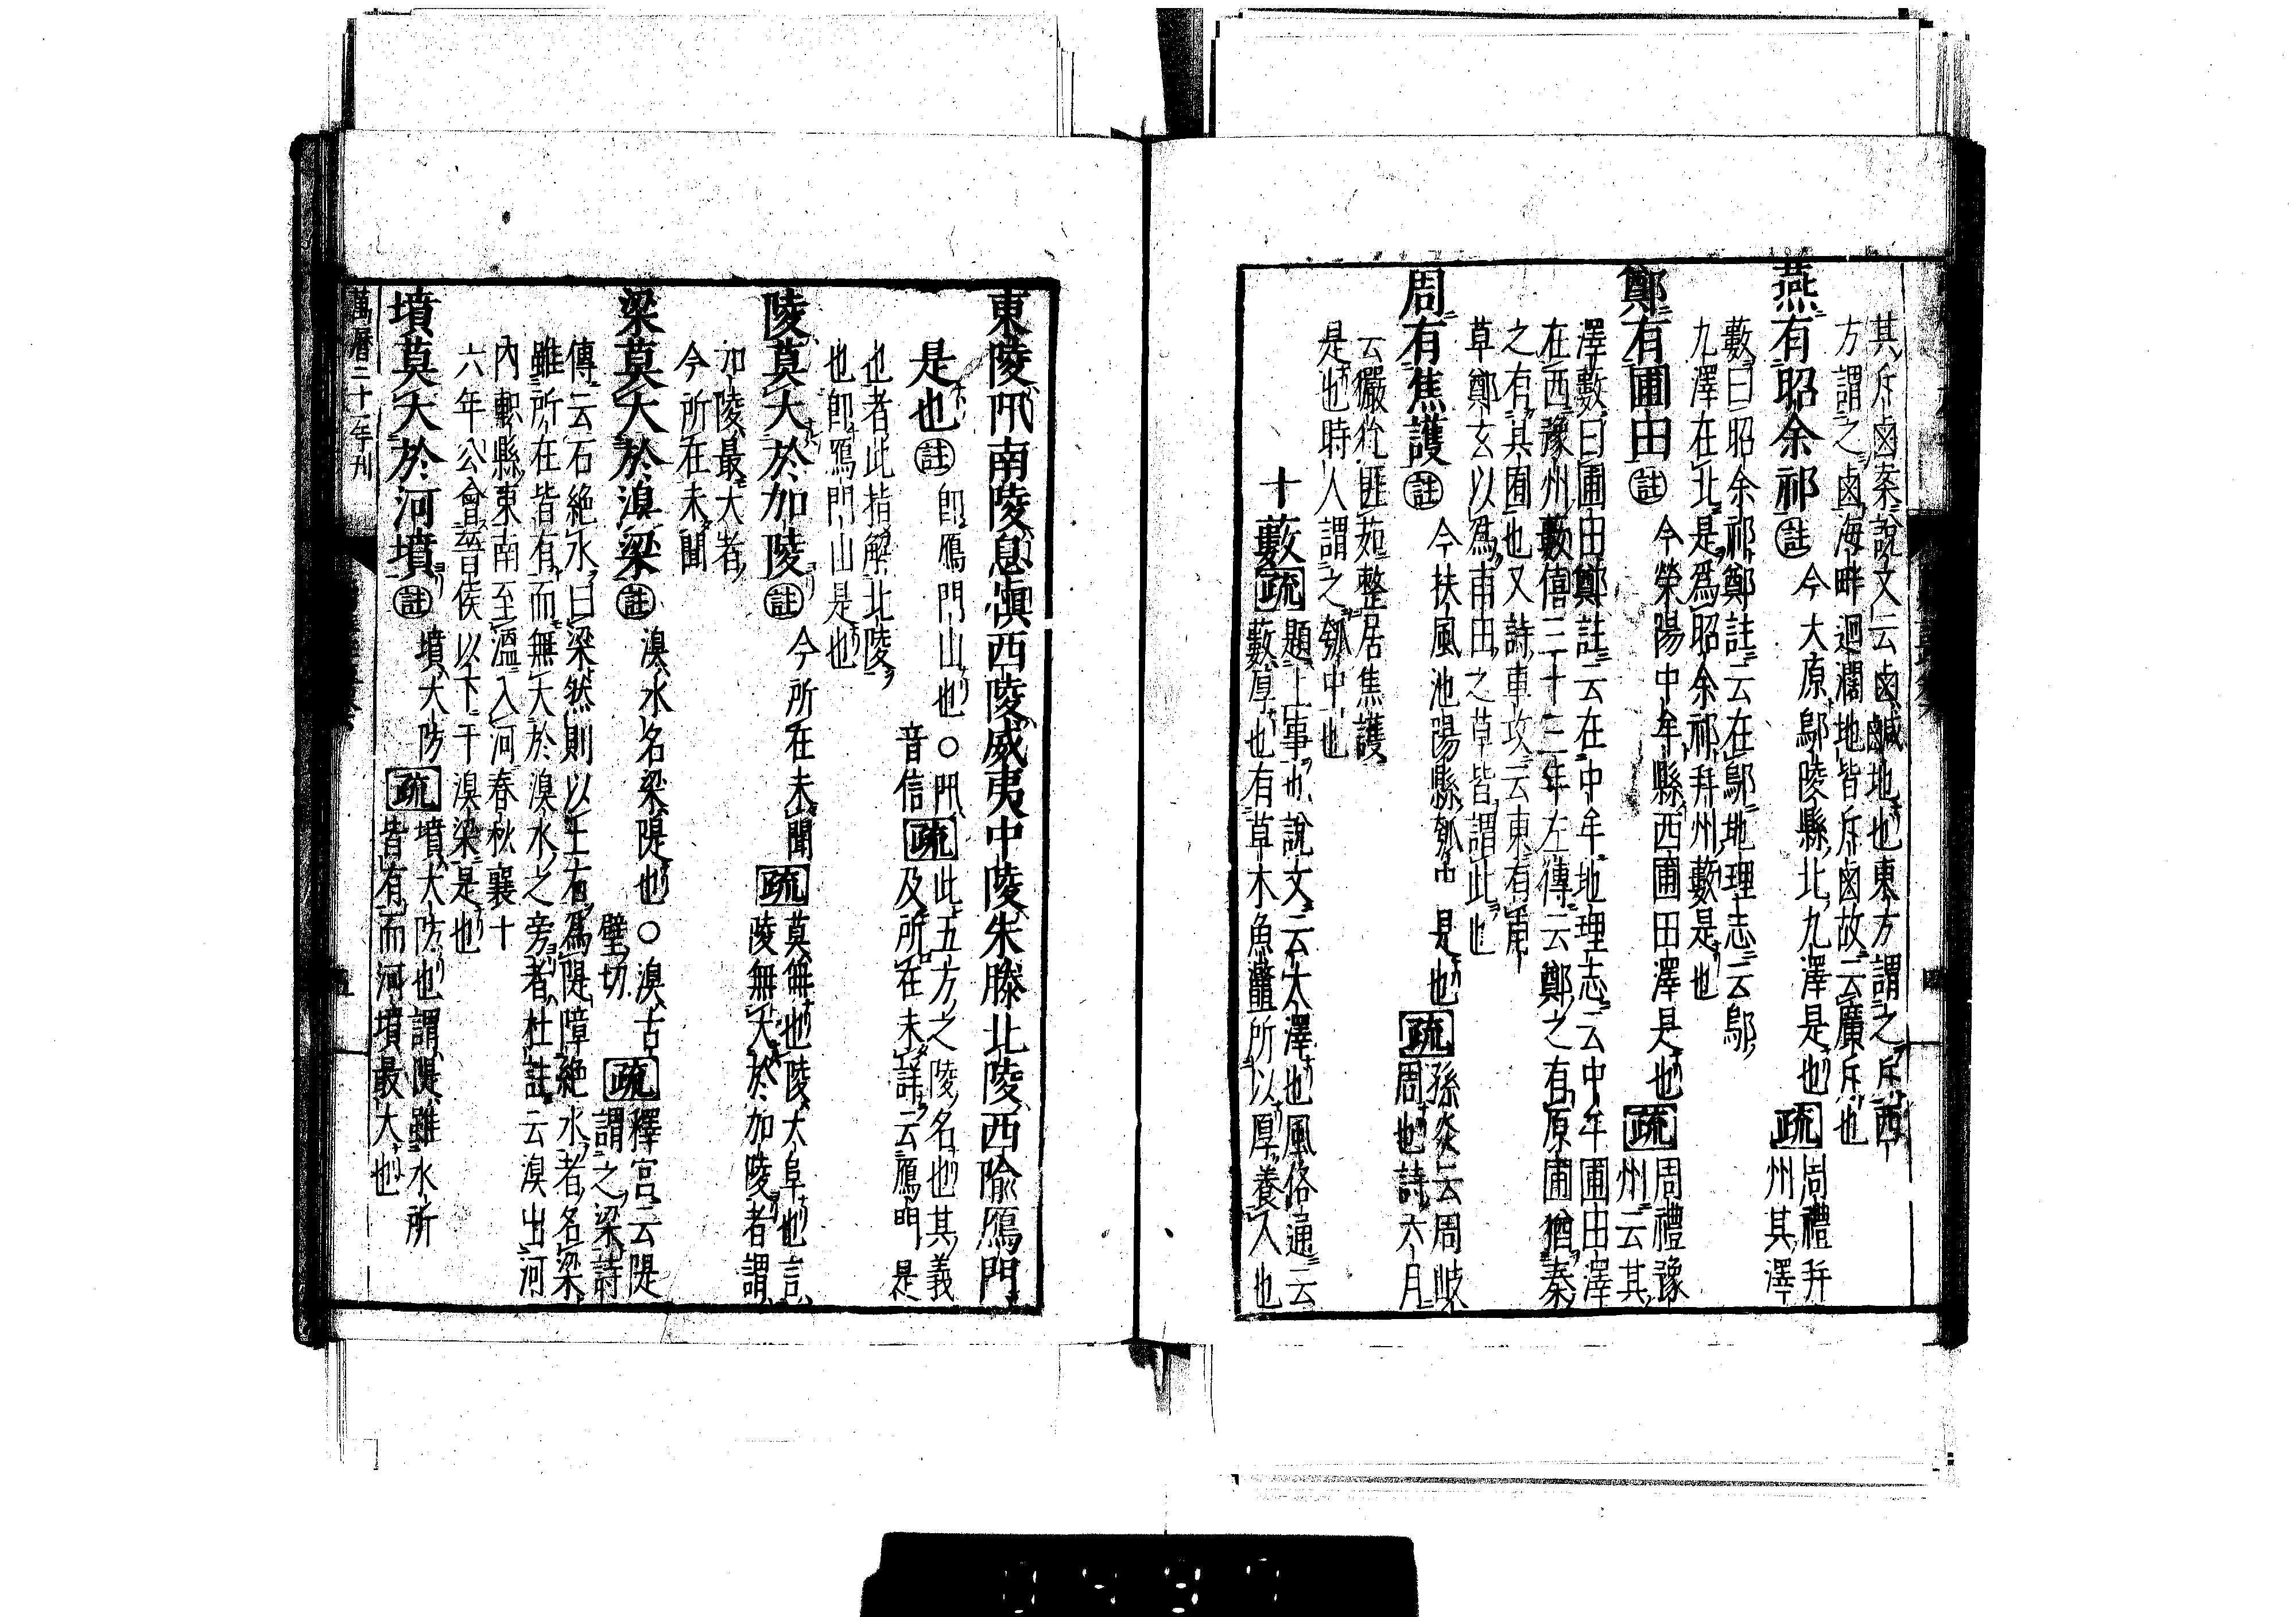 其斥鹵案說文云鹵鹹地也東方謂之斥西
方謂之鹵海畔迥濶地皆斥鹵故云廣斥也
燕有昭余祁註今大原鄔陵縣北九澤是也疏周禮幷
州其澤
藪曰昭余祁鄭註云在鄔地理志云鄔
九澤在北是爲昭余祁幷州藪是也
鄭有圃田註今滎陽中牟縣西圃田澤是也疏周禮豫
州云其
澤藪曰圃田鄭註云在中牟地理志云中牟圃田澤
在西豫州藪僖三十三年左傳云鄭之有原圃猶秦
之有其囿也又詩車攻云東有甫
草鄭玄以爲甫田之草皆謂此也
周有焦護註今扶風池陽縣瓠中是也疏孫炎云周岐
周也詩六月
云玁狁匪茹整居焦護
是也時人謂之瓠中也
十藪疏題上事也說文云大澤也風俗通云
藪厚也有草木魚鼈所以厚養人也
東陵阠南陵息愼西陵威夷中陵朱滕北陵西隃鴈門
是也註卽鴈門山也○阠
音信疏此五方之陵名也其義
及所在未詳云鴈門是
也者此指解北陵
也卽鴈門山是也
陵莫大於加陵註今所在未聞疏莫無也陵大阜也言
陵無大於加陵者謂
加陵最大者
今所在未聞
梁莫大於湨梁註湨水名梁隄也○湨古
壁切疏釋宮云隄
謂之梁詩
傳云石絶水曰梁然則以土石爲隄障絶水者名梁
雖所在皆有而無大於湨水之旁者杜註云湨出河
內軹縣東南至溫入河春秋襄十
六年公會晉侯以下于湨梁是也
墳莫大於河墳註墳大防疏墳大防也謂隄雖水所
皆有而河墳最大也
萬曆二十一年刊